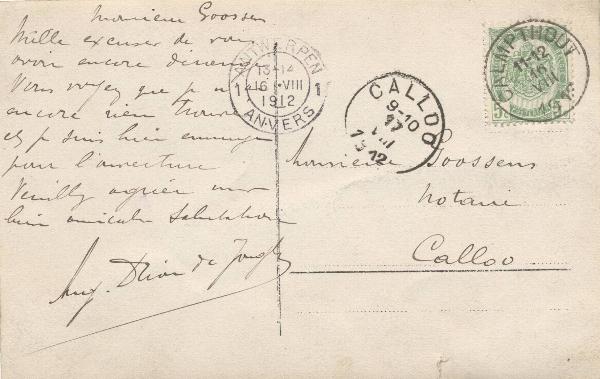 Monsieur Goossens
Mille excuses de vous
avoir encore dérangé
Vous voyez que je n'ai
encore rien trouvé
et je suis bien ennuyé
pour l'ouverture
Veuillez agréer mes
bien amicales salutations
Aug. de Jongh
ANTWERPEN
13-14
1 16 VIII 1
1912
ANVERS
CALLOO
9-10
17
VIII
1912
11-12
VIII
Monsieur Goossens
notaire
Calloo